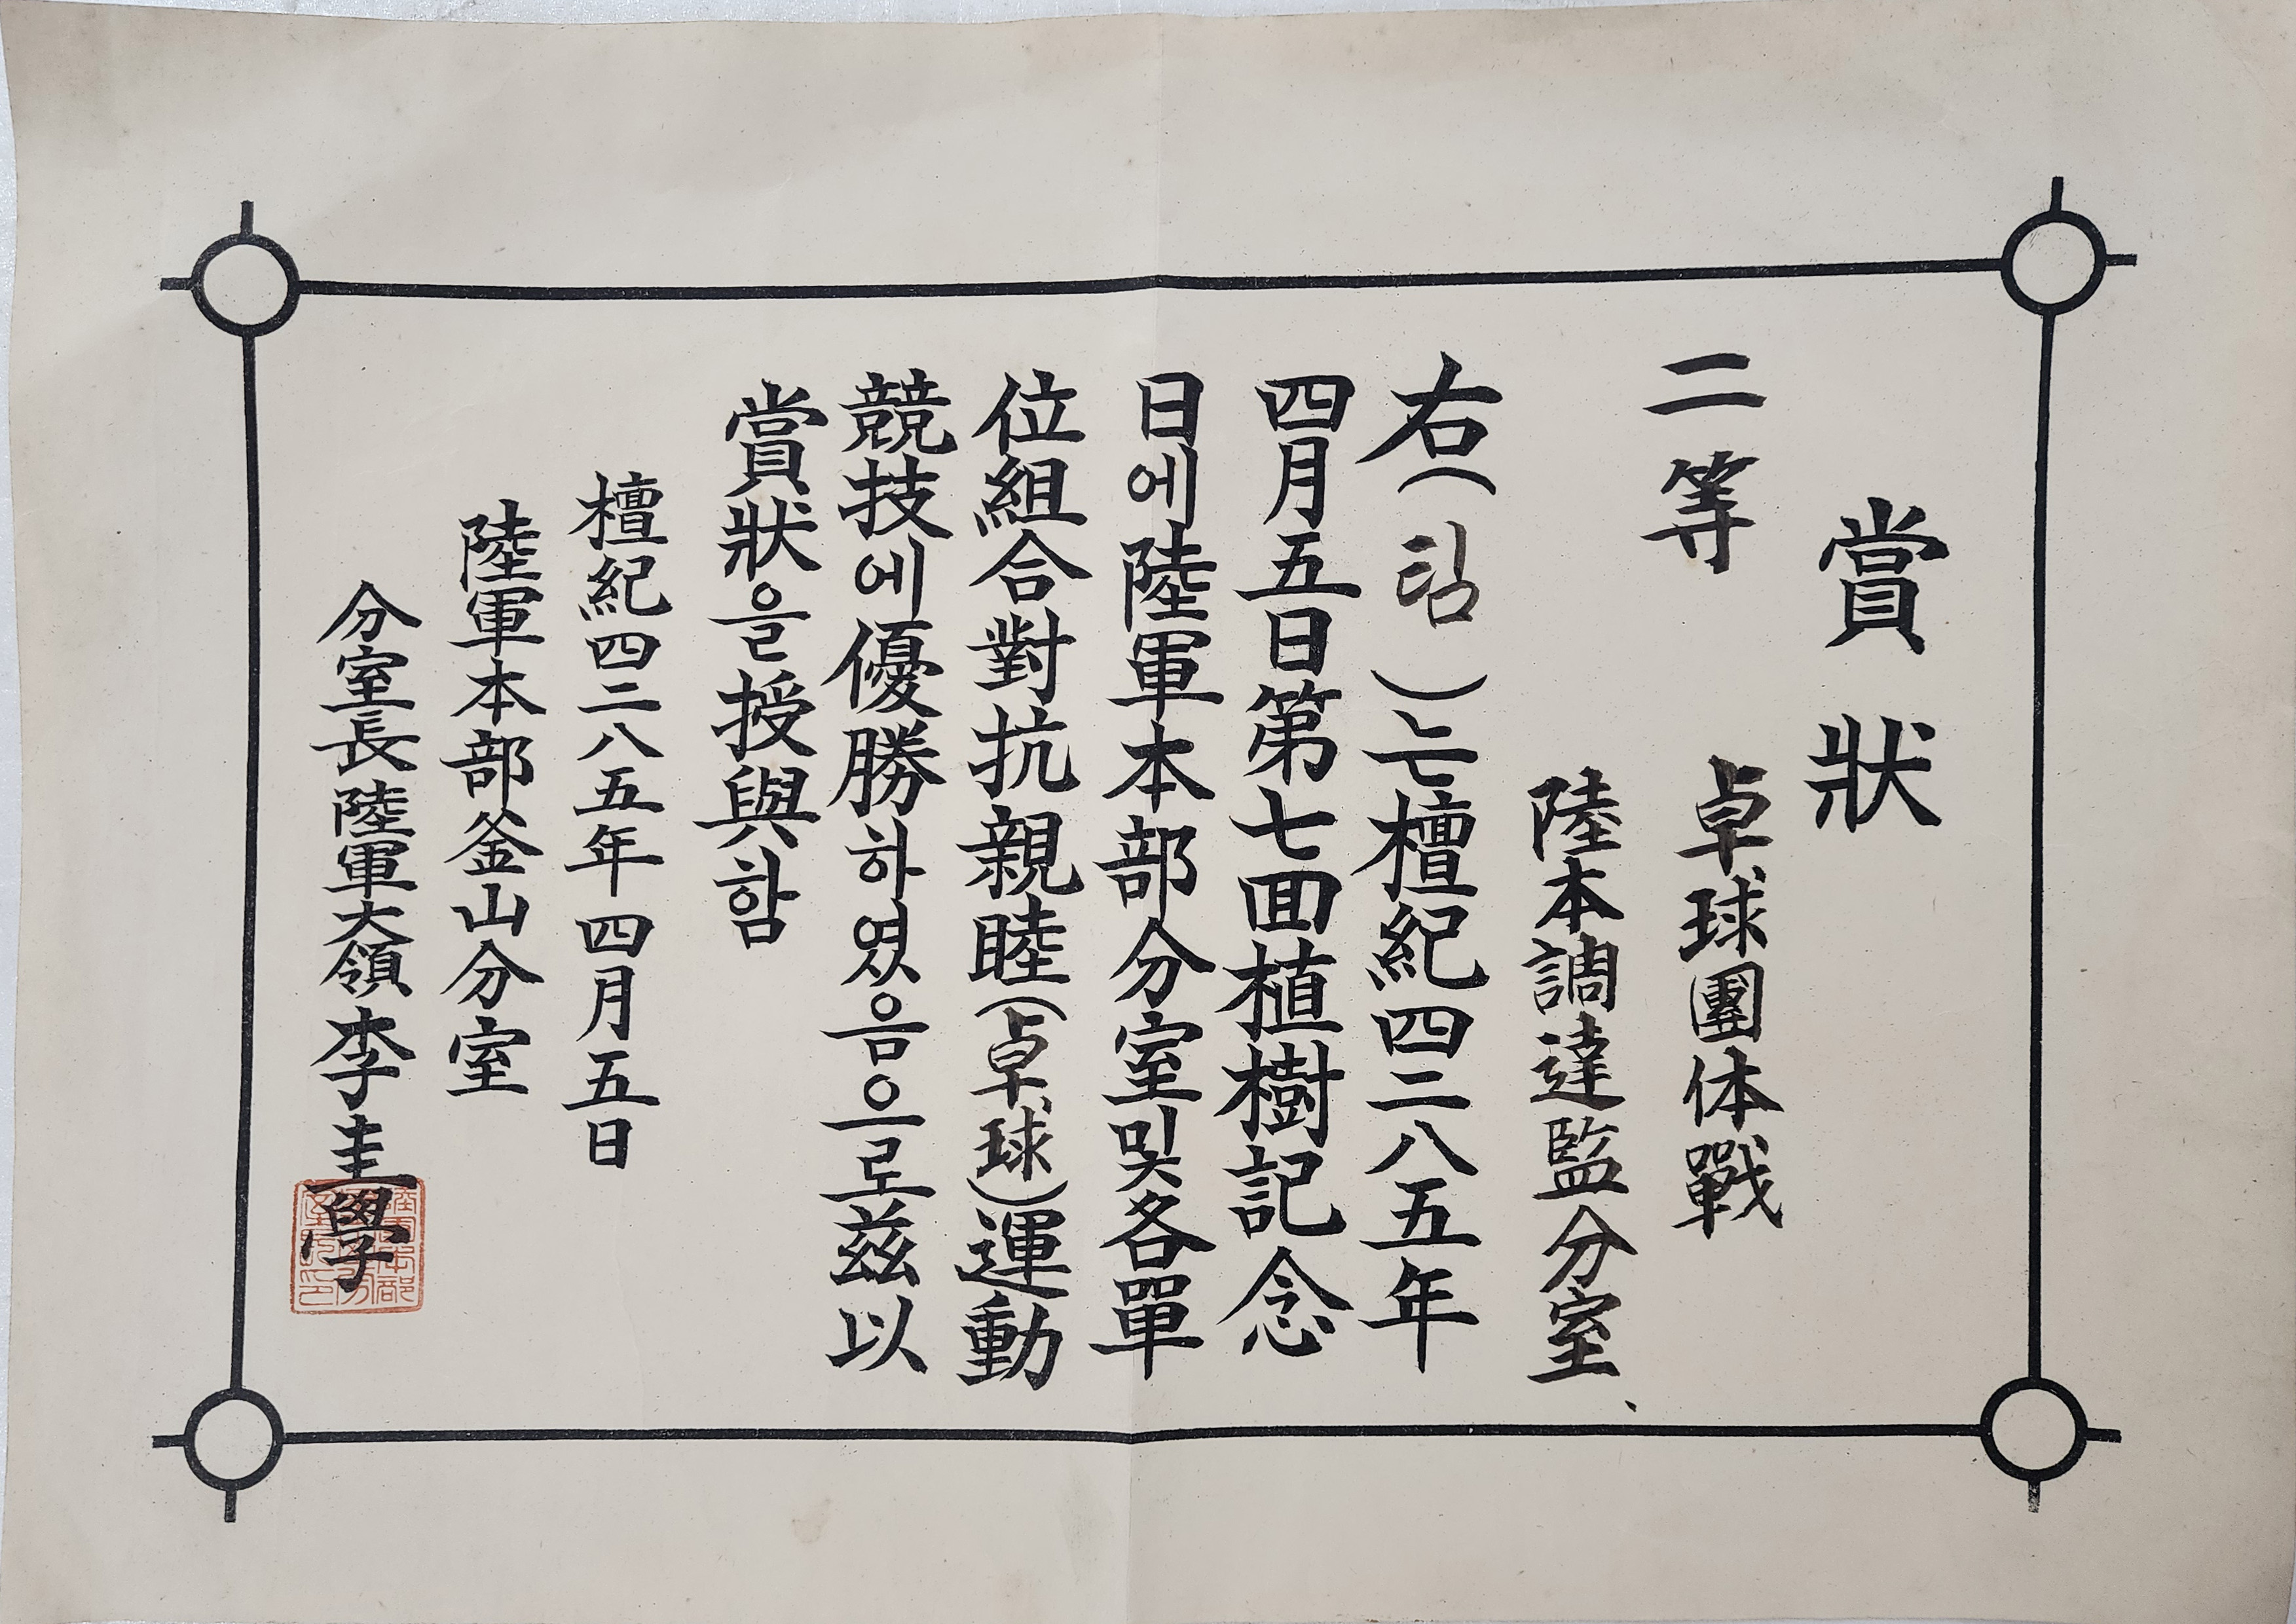 賞狀
二等 卓球團体戰
陸本調達監分室
右(팀)는檀紀四二八五年
四月五日第七回植樹記念
日에陸軍本部分室및各單
位組合對抗親睦(卓球)運動
競技에優勝하였음으로玆以
賞狀을授與함
檀紀四二八五年四月五日
陸軍本部釜山分室
分室長陸軍大領李圭學